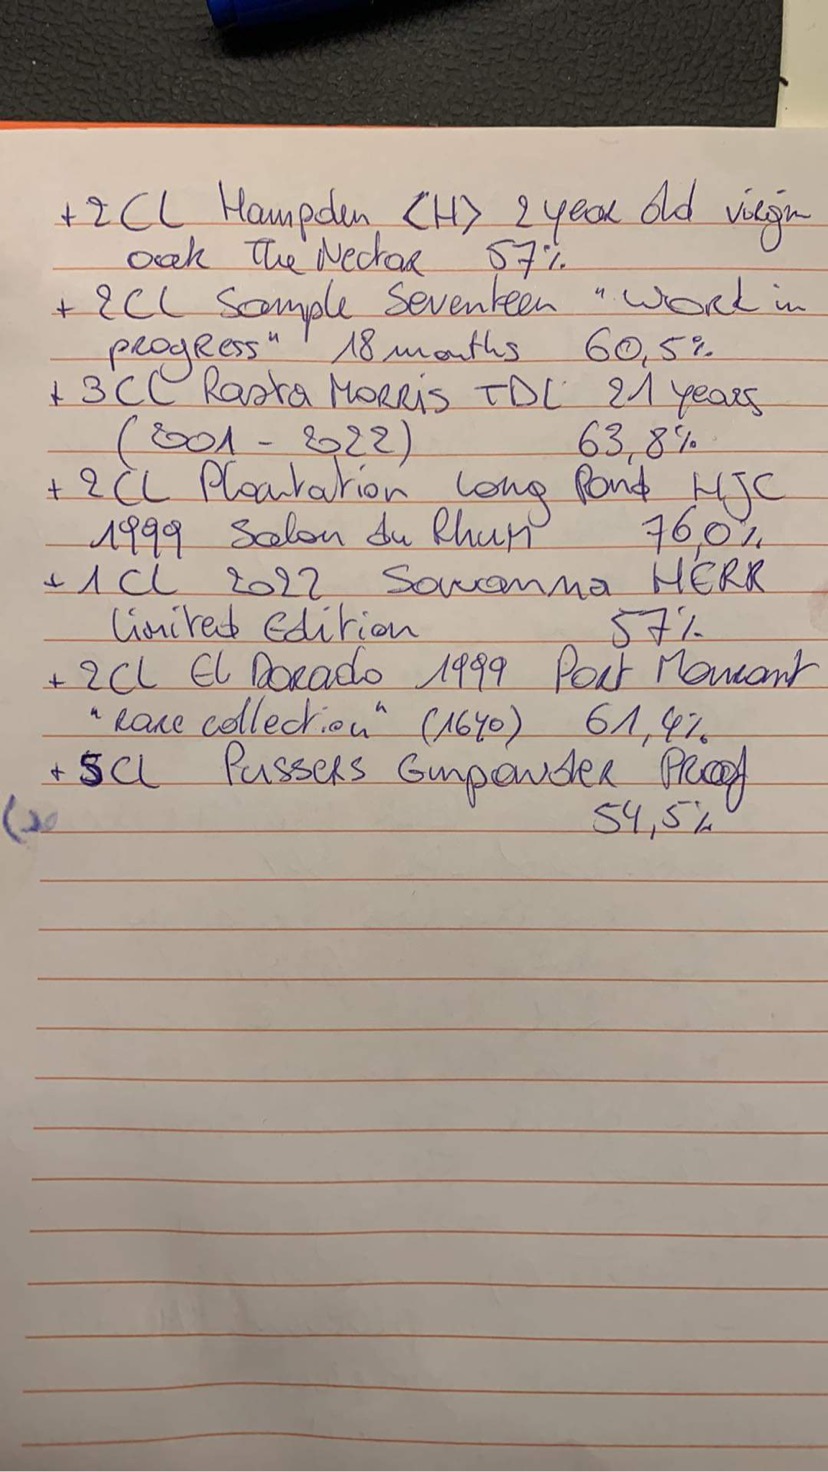 + 2CL Hampden <H> 2 year old virgin
oak The Nectar 57%
+ 2CL Sample Seventeen "Work in
progress" 18 months 60,5%
+ 3CL Rasta Morris TDL 21 years
(2001 - 2022) 63,8%
+ 2CL Plantation Long Pond HJC
1999 Salon du Rhum 76,0%
+ 1CL 2022 Savanna HERR
Limited Edition 57%
+ 2CL El Dorado 1999 Port Mourant
"rare collection" (1640) 61,4%
+ 5CL Pussers Gunpowder Proof
54,5%